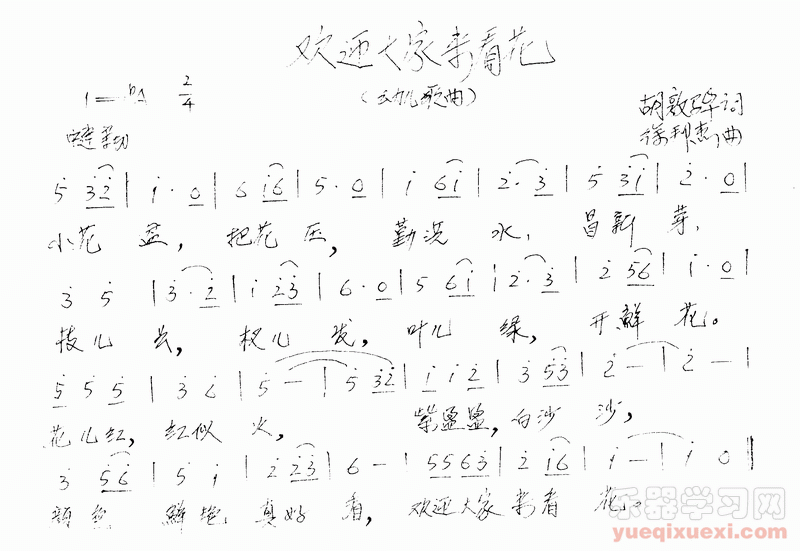 欢迎大家来看花
1=♭A 2/4
(幼儿歌曲)
胡敦骅词
徐邦杰曲
5 32 | 1·0 | 6 16 | 5·0 | 1 61 | 2·3 | 5 31 | 2·0 |
小花盆, 把花压, 勤浇水, 冒新芽,
3 5 | 3·2 | 1 23 | 6·0 | 5 61 | 2·3 | 2 56 | 1·0 |
枝儿长, 杈儿发, 叶儿绿, 开鲜花。
5 5 5 | 3 6 | 5 — | 5 32 | 1 1 2 | 3 53 | 2 — | 2 — |
花儿红, 红似火, 紫盈盈, 白沙沙,
3 56 | 5 1 | 2 23 | 6 — | 5563 | 2 16 | 1 — | 1 0 ‖
颜色 鲜艳 真好看, 欢迎大家来看花。
乐器学习网
yueqixuexi.com